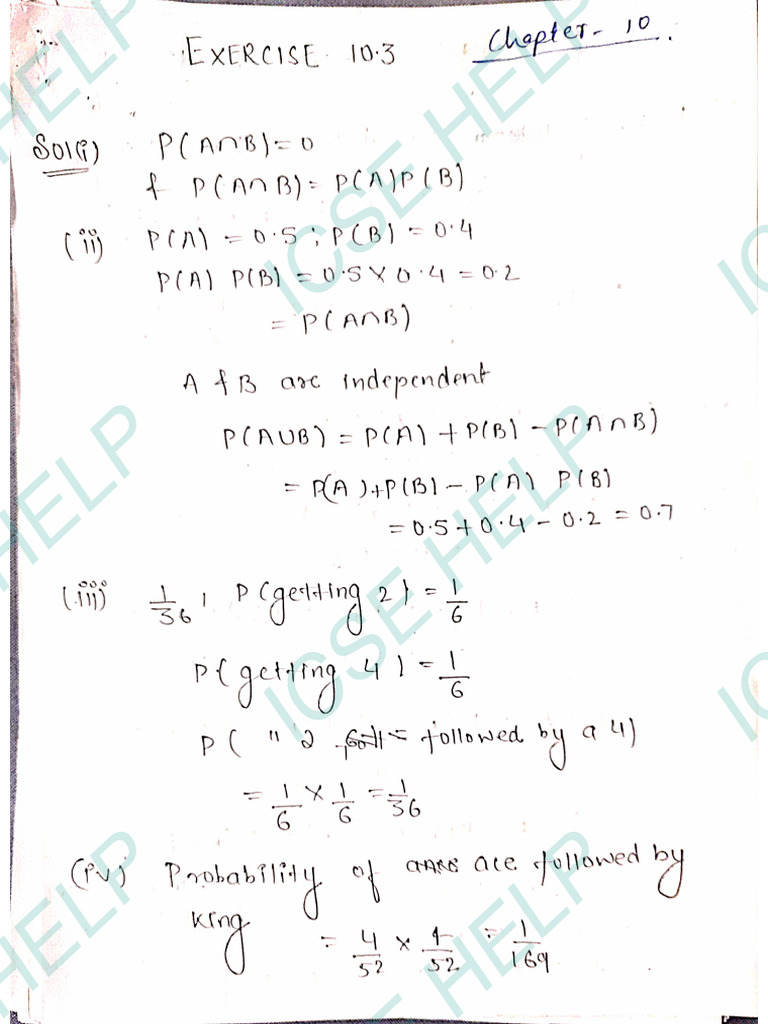 EXERCISE 10.3
Chapter - 10
Sol(i) P(A∩B) = 0
& P(A∩B) = P(A)P(B)
(ii) P(A) = 0.5 ; P(B) = 0.4
P(A) P(B) = 0.5 × 0.4 = 0.2
= P(A∩B)
A & B are independent
P(A∪B) = P(A) + P(B) - P(A∩B)
= P(A) + P(B) - P(A) P(B)
= 0.5 + 0.4 - 0.2 = 0.7
(iii) 1/36, P(getting 2) = 1/6
P(getting 4) = 1/6
P( " 2 followed by a 4)
= 1/6 × 1/6 = 1/36
(iv) Probability of ace followed by
king
= 4/52 × 4/52 = 1/169
ICSE HELP